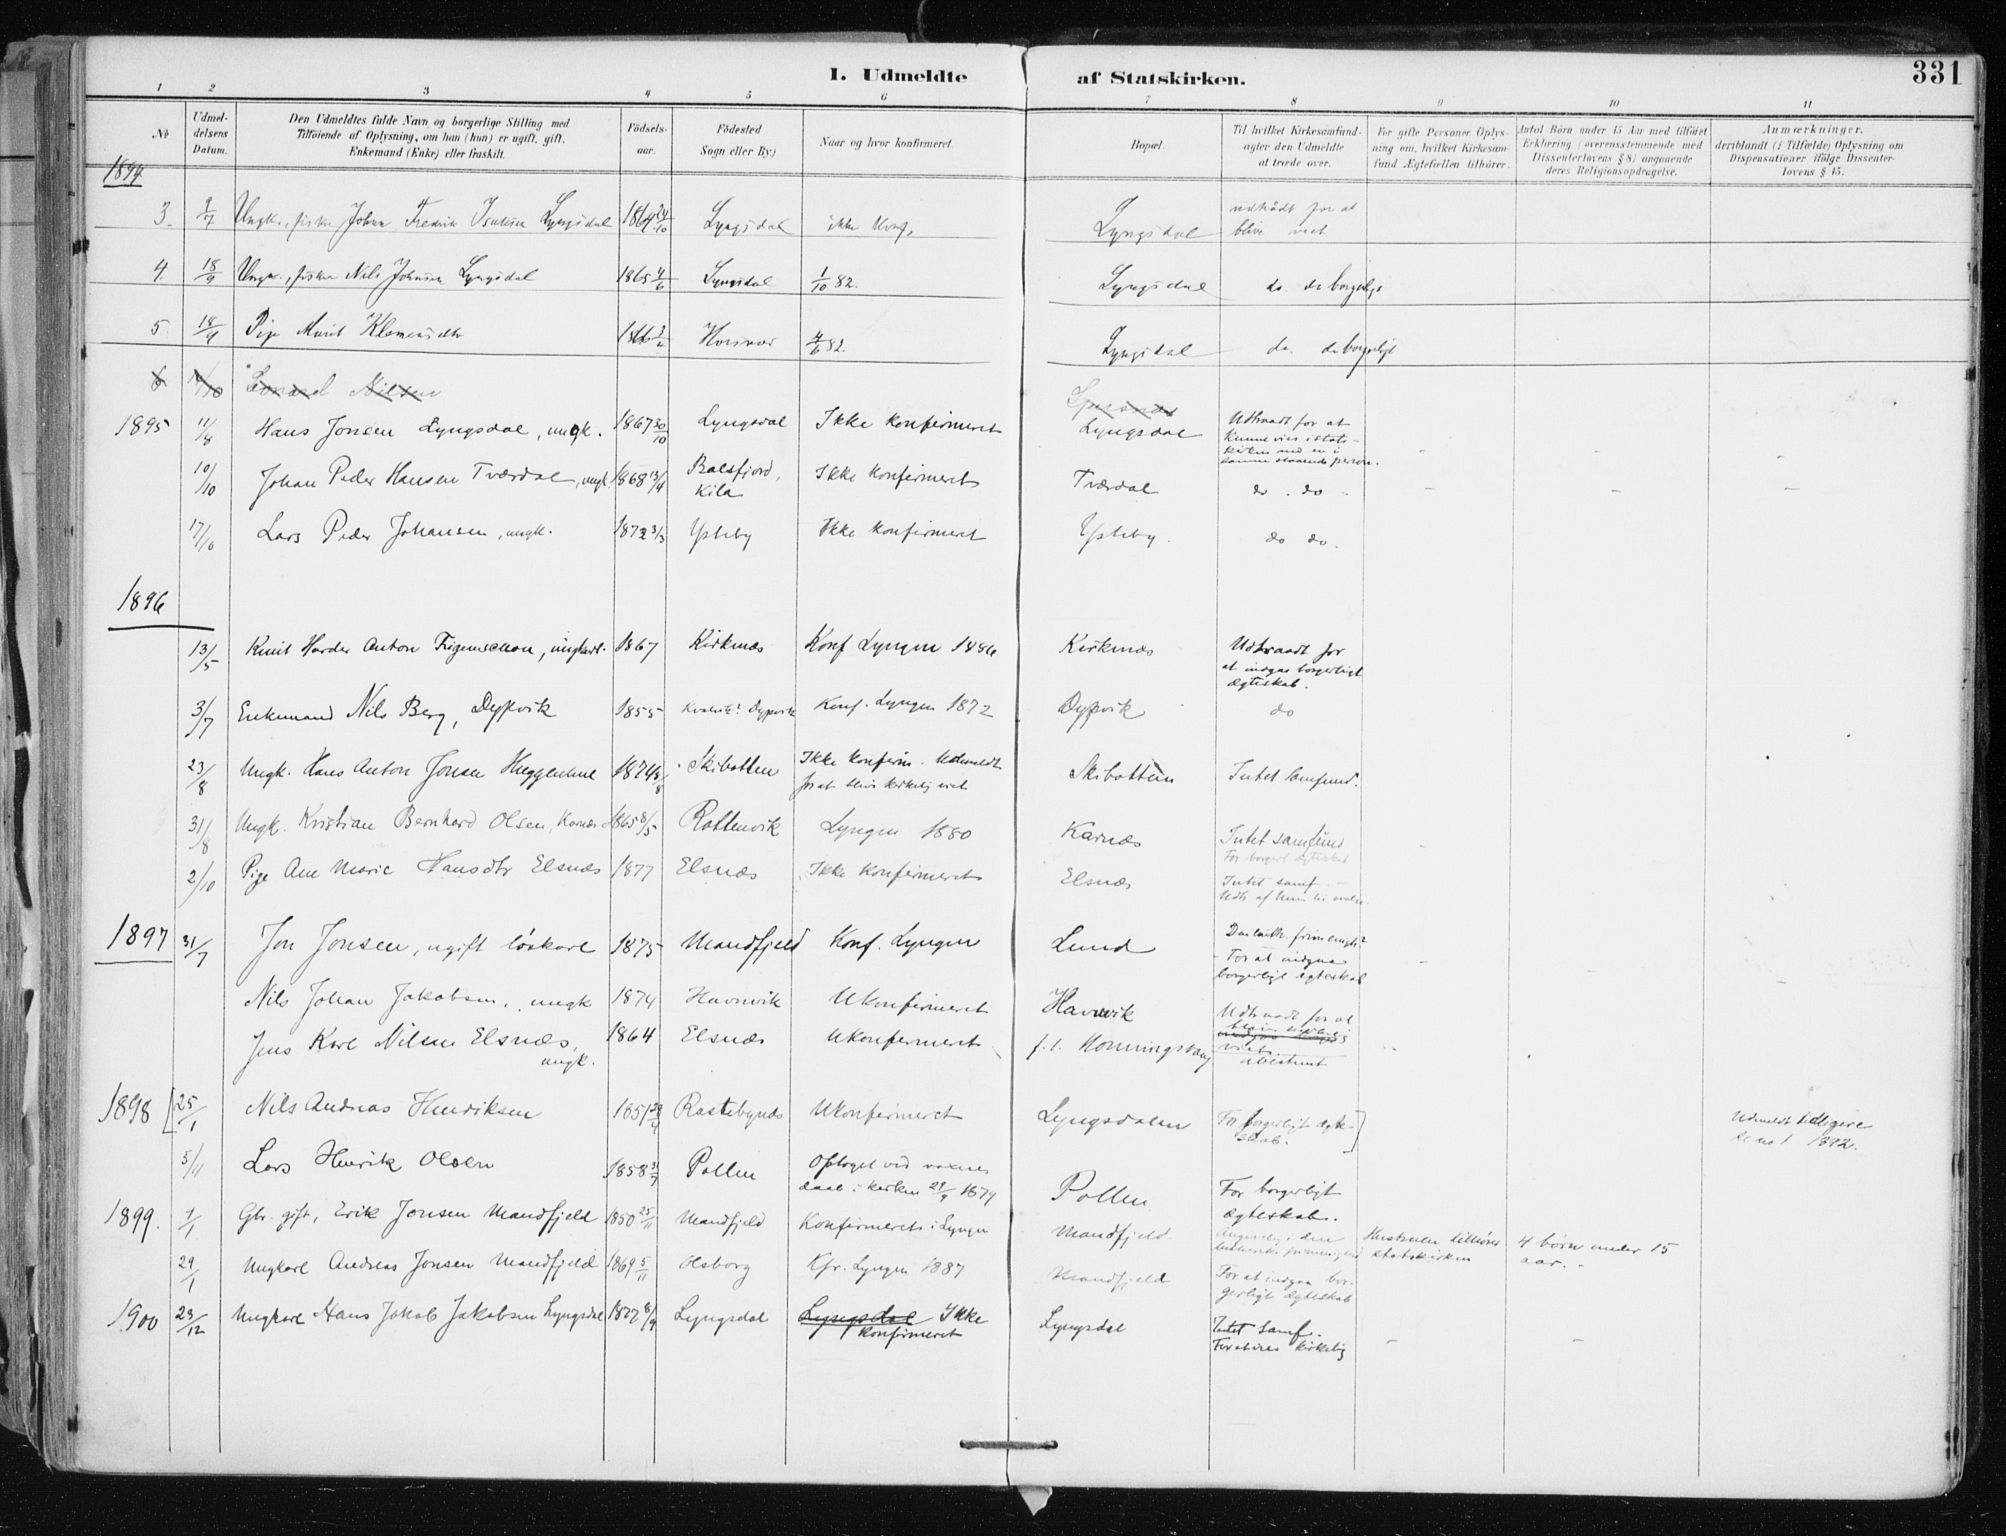 I. Udmeldte af Statskirken.
331
1 2 3 4 5 6 7 8 9 10 11
No
Udmeldelsens Datum.
Den Udmeldtes fulde Navn og borgerlige Stilling med
Tilføiende af Oplysning, om han (hun) er ugift, gift,
Enkemand (Enke) eller fraskilt.
Fødselsaar.
Fødested
Sogn eller By.)
Naar og hvor konfirmeret.
Bopæl.
Til hvilket Kirkesamfund
agter den Udmeldte
at træde over.
For gifte Personer Oplys-
ning om, hvilket Kirkesam-
fund Ægtefællen tilhører.
Antal Børn under 15 Aar med tilføiet
Erklæring (overensstemmende med
Dissenterlovens § 8) angaaende
deres Religionsopdragelse.
Anmærkninger,
deriblandt (i Tilfælde) Oplysning om
Dispensationer ifølge Dissenter-
lovens § 15.
1894
3. 9/7 Ungk., fisker Johan Fredrik Isaksen Lyngsdal 1864 24/10 Lyngsdal ikke konf. Lyngsdal udtrådt for at
blive viet
4. 18/9 Ungk., fisker Nils Johnsen Lyngsdal 1865 4/6 Lyngsdal 1/10 82. Lyngsdal do. do borgerligt
5. 18/9 Pige Marit Klemensdtr Horsnæs 4/6 82. Lyngsdal do. do borgerligt
6 Nilsen
1895 11/8 Hans Jonsen Lyngsdal, ungk. 1867 30/10 Lyngsdal Ikke konfirmeret Lyngsdal Udtraadt for at
kunne vies i stats-
kirken med en i
samme staaende person. - - -
10/10 Johan Peder Hansen Tværdal, ungk. 1868 13/4 Balsfjord,
Kila Ikke konfirmeret Tværdal do. do - - -
17/10 Lars Peder Johansen, ungk. 1872 3/3 Ysteby Ikke konfirmeret Ysteby. do do.
1896
13/5 Knut Harder Anton Figenschou, ungkarl. 1867 Kirknæs Konf Lyngen 1886 Kirknæs Udtraadt for
at indgaa borgerligt
ægteskab.
3/7 Enkemand Nils Berg, Dypvik 1855 Dypvik Konf. Lyngen 1872 Dypvik do
23/8 Ungk. Hans Anton Jonsen Heggenhue 1874 Skibotten Ikke konfirm. Udmeldt
for at blive kirkelig viet Skibotten Intet samfund.
31/8 Ungk. Kristian Bernhard Olsen, Karnæs 1865 8/5 Rottenvik Lyngen 1880 Karnæs Intet samfund
For borgerl. ægteskab
2/10 Pige Ane Marie Hansdtr Elsnæs 1877 Elsnæs Ikke konfirmeret Elsnæs Intet samf.
1897 31/7 Jon Jonsen, ugift løskarl 1875 Mandfjeld Konf. Lyngen Lund
- For at indgaa
borgerligt ægteskab - - -
Nils Johan Jakobsen, ungk 1874 Havnvik Ukonfirmeret Havnvik Udtraadt for at
blive kirkelig
viet
Jens Karl Nilsen Elsnæs,
ungk. 1864 Elsnæs Ukonfirmeret f. t. Honningsvaag ubestemt
1898 25/1 Nils Andreas Henriksen 1851 Rastebynæs Ukonfirmeret Lyngsdalen For borgerligt ægte-
skab. Udmeldt tidligere
se no 1 1892.
5/11 Lars Henrik Olsen 1858 Pollen Optaget ved voxnes
daab i kirken 29/9 1874 Pollen For borgerligt
ægteskab.
1899. 1/1 Gbr. gift, Erik Jonsen Mandfjeld 1850 25/11 Mandfjeld Konfirmeret i Lyngen Mandfjeld Angivelig i den
lutherske frimenighed Hustruen tilhører
statskirken 4 børn under 15
aar. -
29/1 Ungkarl Andreas Jonsen Mandfjeld 1869 5/11 Olsborg Kfr. Lyngen 1887 Mandfjeld For at indgaa bor-
gerligt ægteskab
1900 29/12 Ungkarl Hans Jakob Jakobsen Lyngsdal 1877 8/9 Lyngsdal Lyngsdal Ikke
konfirmeret Lyngsdal Intet samf.
For at vies kirkelig - -